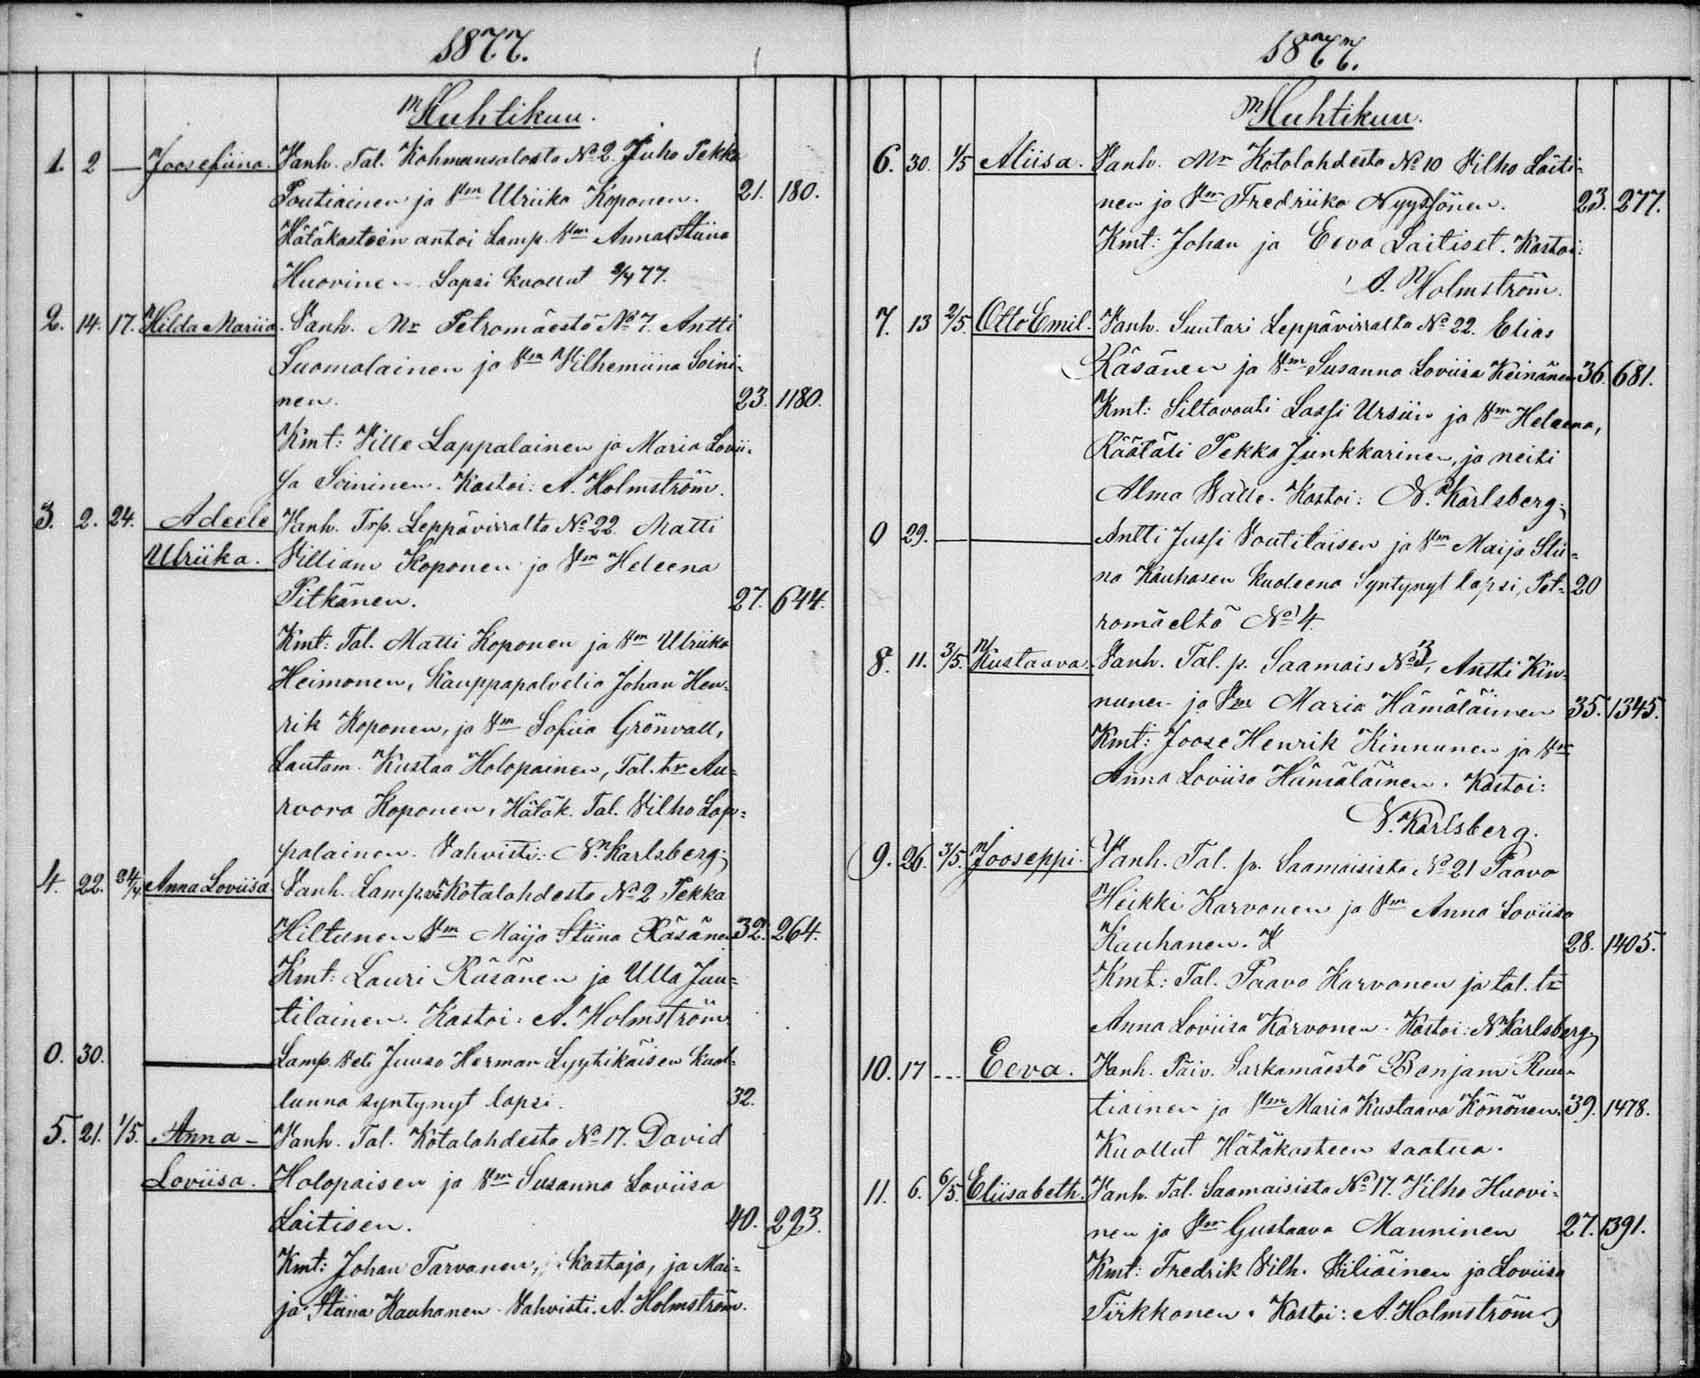 1877.
Huhtikuu.
1. 2 — Joosefiina. Vanh. Tal. Kohmansalosta No 2 Juho Pekka
Poutiainen ja Vm Ulriika Koponen. 21. 180.
Hätäkasteen antoi Lamp. Vm Anna Stiina
Huovinen. Lapsi kuollut 3/4 77.
2. 14. 17. Hilda Mariia. Vanh. Mr Petromäestö No 7. Antti
Suomalainen ja Vm Vilhemiina Soini-
nen. 23. 1180.
Kmt: Ville Lappalainen ja Maria Lovii-
sa Soininen. Kastoi: A. Holmström.
3. 2. 24. Adeele Vanh. Trp. Leppävirralta No 22. Matti
Ulriika. Villiam Koponen ja Vm Heleena
Pitkänen. 27. 644.
Kmt: Tal. Matti Koponen ja Vm Ulriika
Heimonen, Kauppapalvelia Johan Hen-
rik Koponen, ja Vm Sofiia Grönvall,
Lautam. Kustaa Holopainen, Tal. tr Au-
roora Koponen, Hätäk. Tal. Vilho Lap-
palainen. Vahvisti: N. Karlsberg.
4. 22. 24/4 Anna Loviisa. Vanh. Lamp. Kotalahdesta No 2 Pekka
Hiltunen Vm Maija Stiina Räsänen 32. 264.
Kmt: Lauri Räsänen ja Ulla Juu-
tilainen. Kastoi: A. Holmström.
0. 30. — Lamp. Veti Juuso Herman Lyytikäisen kuol-
lunna syntynyt lapsi. 32.
5. 21. 1/5. Anna - Vanh. Tal. Kotalahdesta No 17. David
Loviisa. Holopaisen ja Vm Susanna Loviisa
Laitisen. 40. 293.
Kmt: Johan Tarvanen, kastaja, ja Mai-
ja Stiina Kauhanen. Vahvisti. A. Holmström.
1877.
Huhtikuu.
6. 30. 1/5 Aliisa. Vanh. Mr Kotolahdesta No 10 Vilho Laiti-
nen ja Vm Fredriika Nyyssönen. 23. 277.
Kmt: Johan ja Eeva Laitiset. Kastoi:
A. Holmström.
7. 13 2/5. Otto Emil. Vanh. Suutari Leppävirralta No 22. Elias
Räsänen ja Vm Susanna Loviisa Keinänen 36. 681.
Kmt: Siltavouti Lassi Ursiin ja Vm Heleena,
Räätäli Pekka Junkkarinen, ja neiti
Alma Välle. Kastoi: N. Karlsberg.
0 29. — Antti Jussi Voutilaisen ja Vm Maija Stii-
na Kauhasen kuoleena Syntynyt lapsi, Pet- 20
romäeltö No 4.
8. 11. 3/5. Kustaava. Vanh. Tal. p. Saamais No 3, Antti Kin-
nunen ja Vm Maria Hämäläinen 35. 1345.
Kmt: Joose Henrik Kinnunen ja Vm
Anna Loviisa Hämäläinen. Kastoi:
N. Karlsberg.
9. 26. 3/5. Jooseppi. Vanh. Tal. p. Saamaisista No 21 Paavo
Heikki Karvonen ja Vm Anna Loviisa
Kauhanen. 28. 1405.
Kmt: Tal. Paavo Karvonen ja tal. tr
Anna Loviisa Karvonen. Kastoi: N. Karlsberg
10. 17 --- Eeva. Vanh. Päiv. Sarkamäestö Benjam Ruu-
tiainen ja Vm Maria Kustaava Könönen. 39. 1478.
Kuollut Hätäkasteen saatua.
11. 6. 6/5. Eliisabeth. Vanh. Tal. Saamaisista No 17. Vilho Huovi-
nen ja Vm Gustaava Manninen 27. 1391.
Kmt: Fredrik Vilh. Väliäinen ja Loviisa
Tirkkonen. Kastoi: A. Holmström